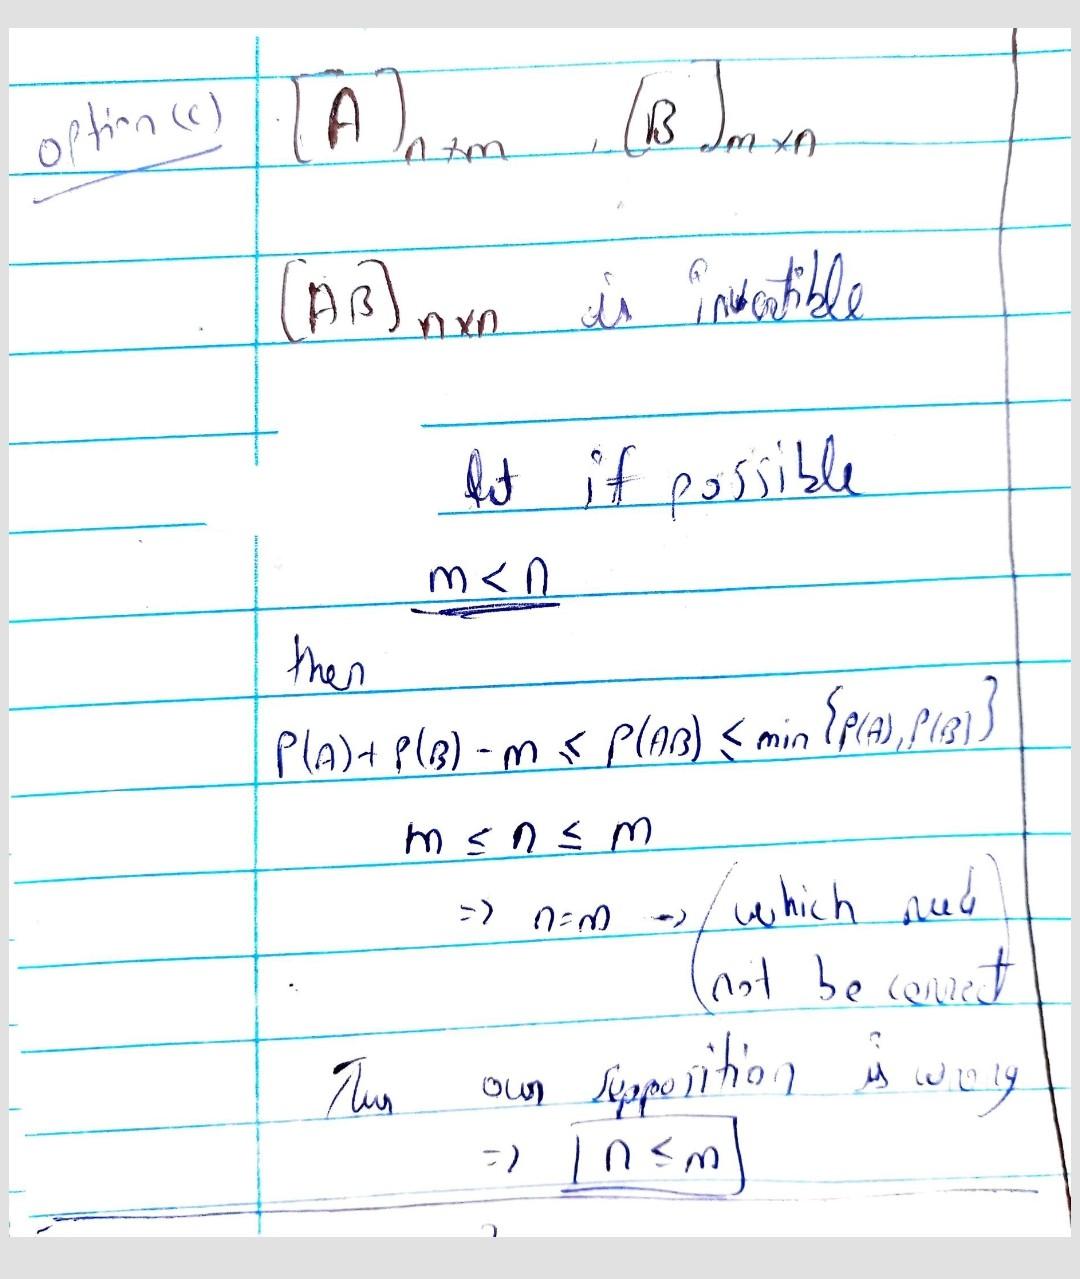 option (c) [A]n×m , [B]m×n
[AB]n×n is invertible
let if possible
m<n
then
P(A)+P(B)-m ≤ P(AB) ≤ min {P(A), P(B)}
m ≤ n ≤ m
=> n=m -> (which need
not be correct
Thus our supposition is wrong
=> n ≤ m